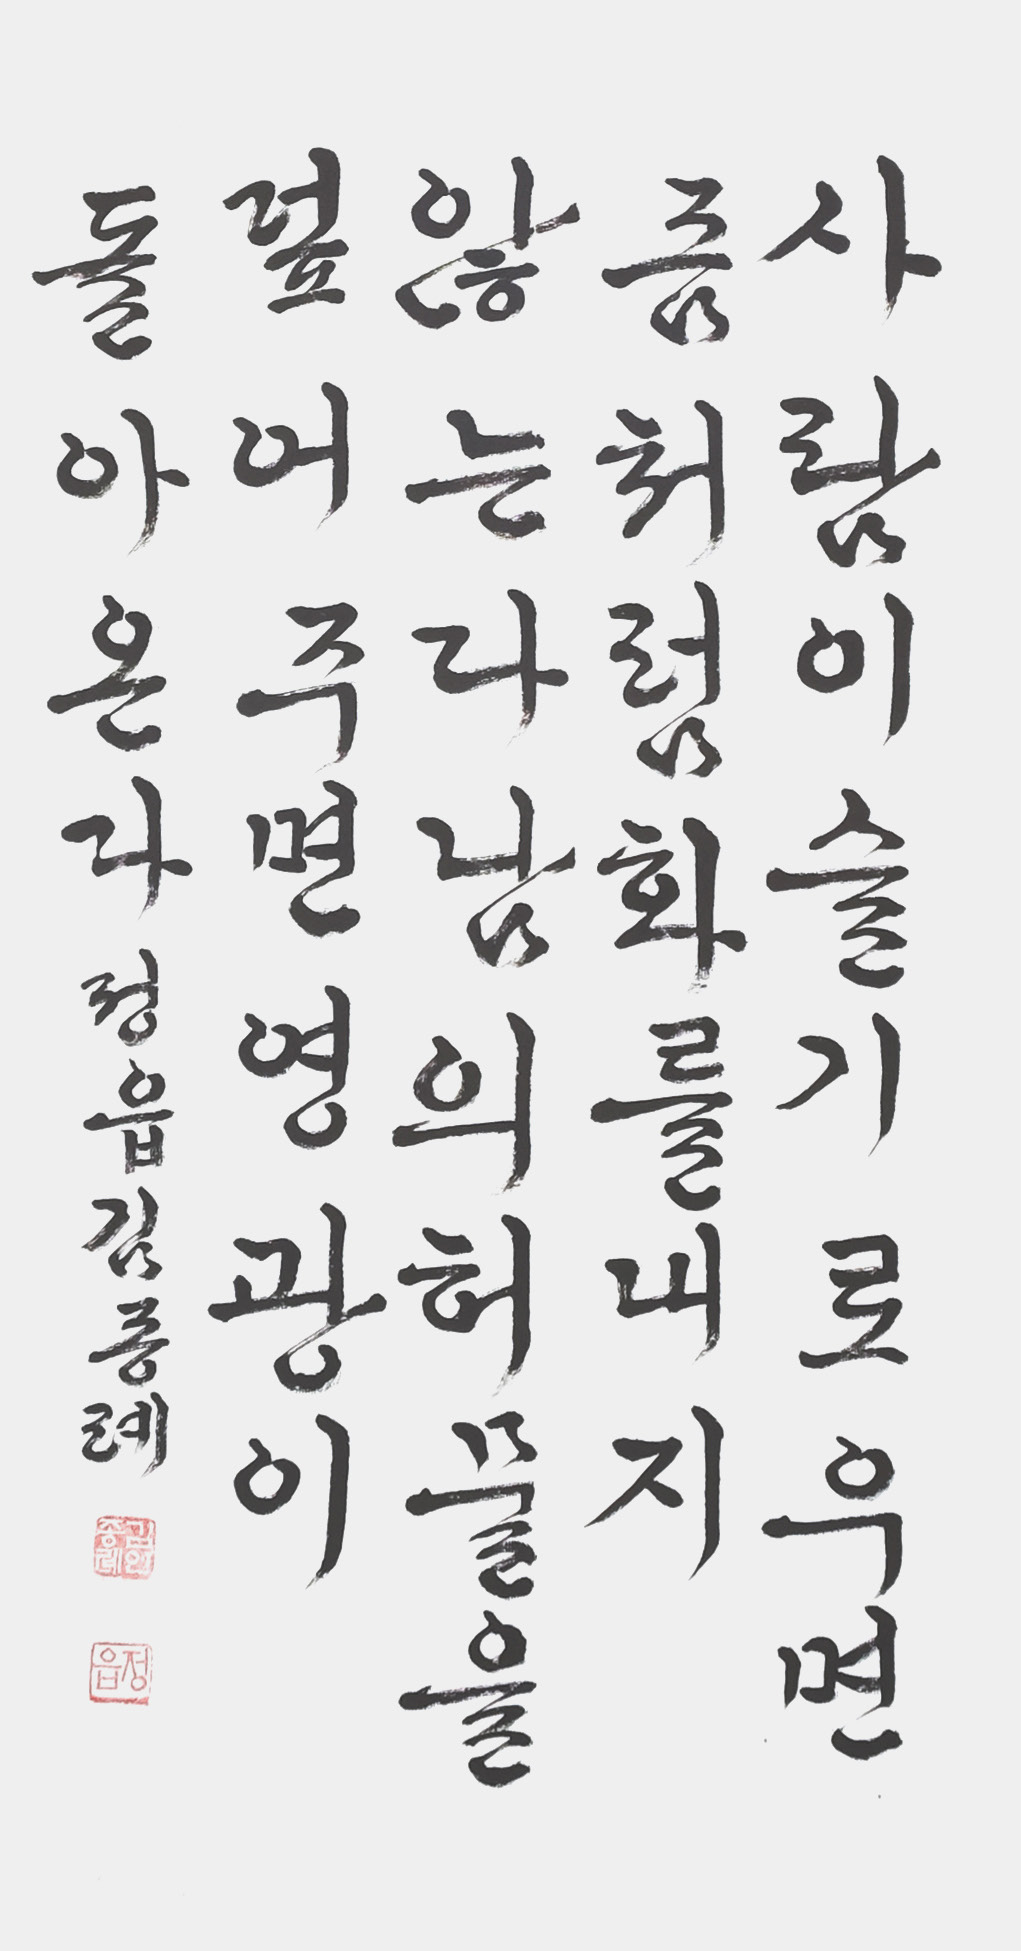 사람이슬기로우면
좀처럼화를내지
않는다남의허물을
덮어주면영광이
돌아온다 정읍김종례
김인
종례
정읍